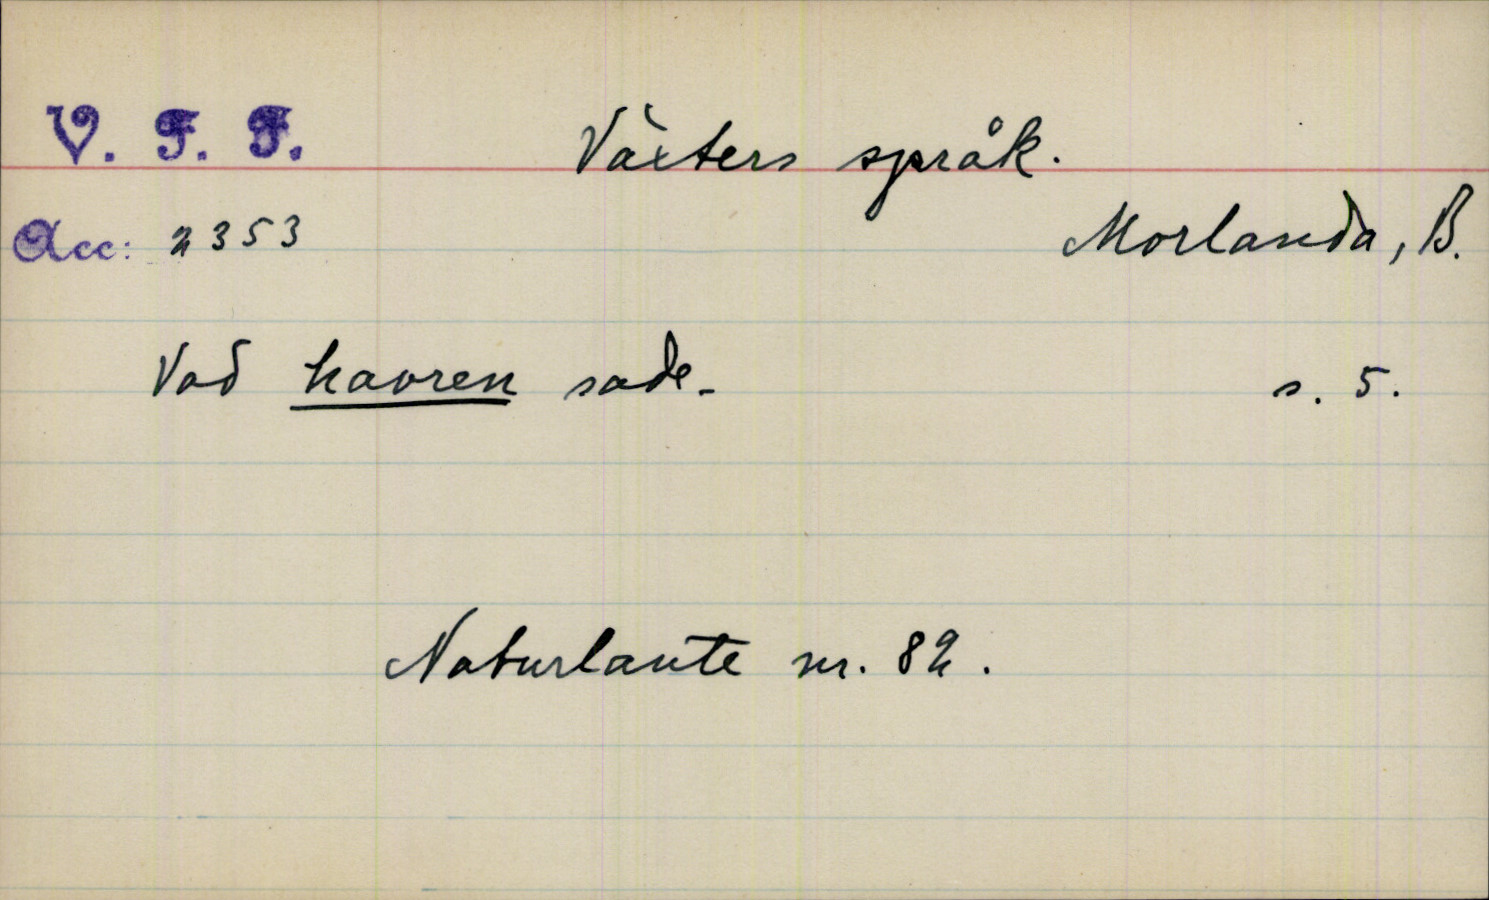 V. F. F. Växters språk.
Acc: 2353 Morlanda, B.
Vad havren sade. s. 5.
Naturlaute nr. 82.